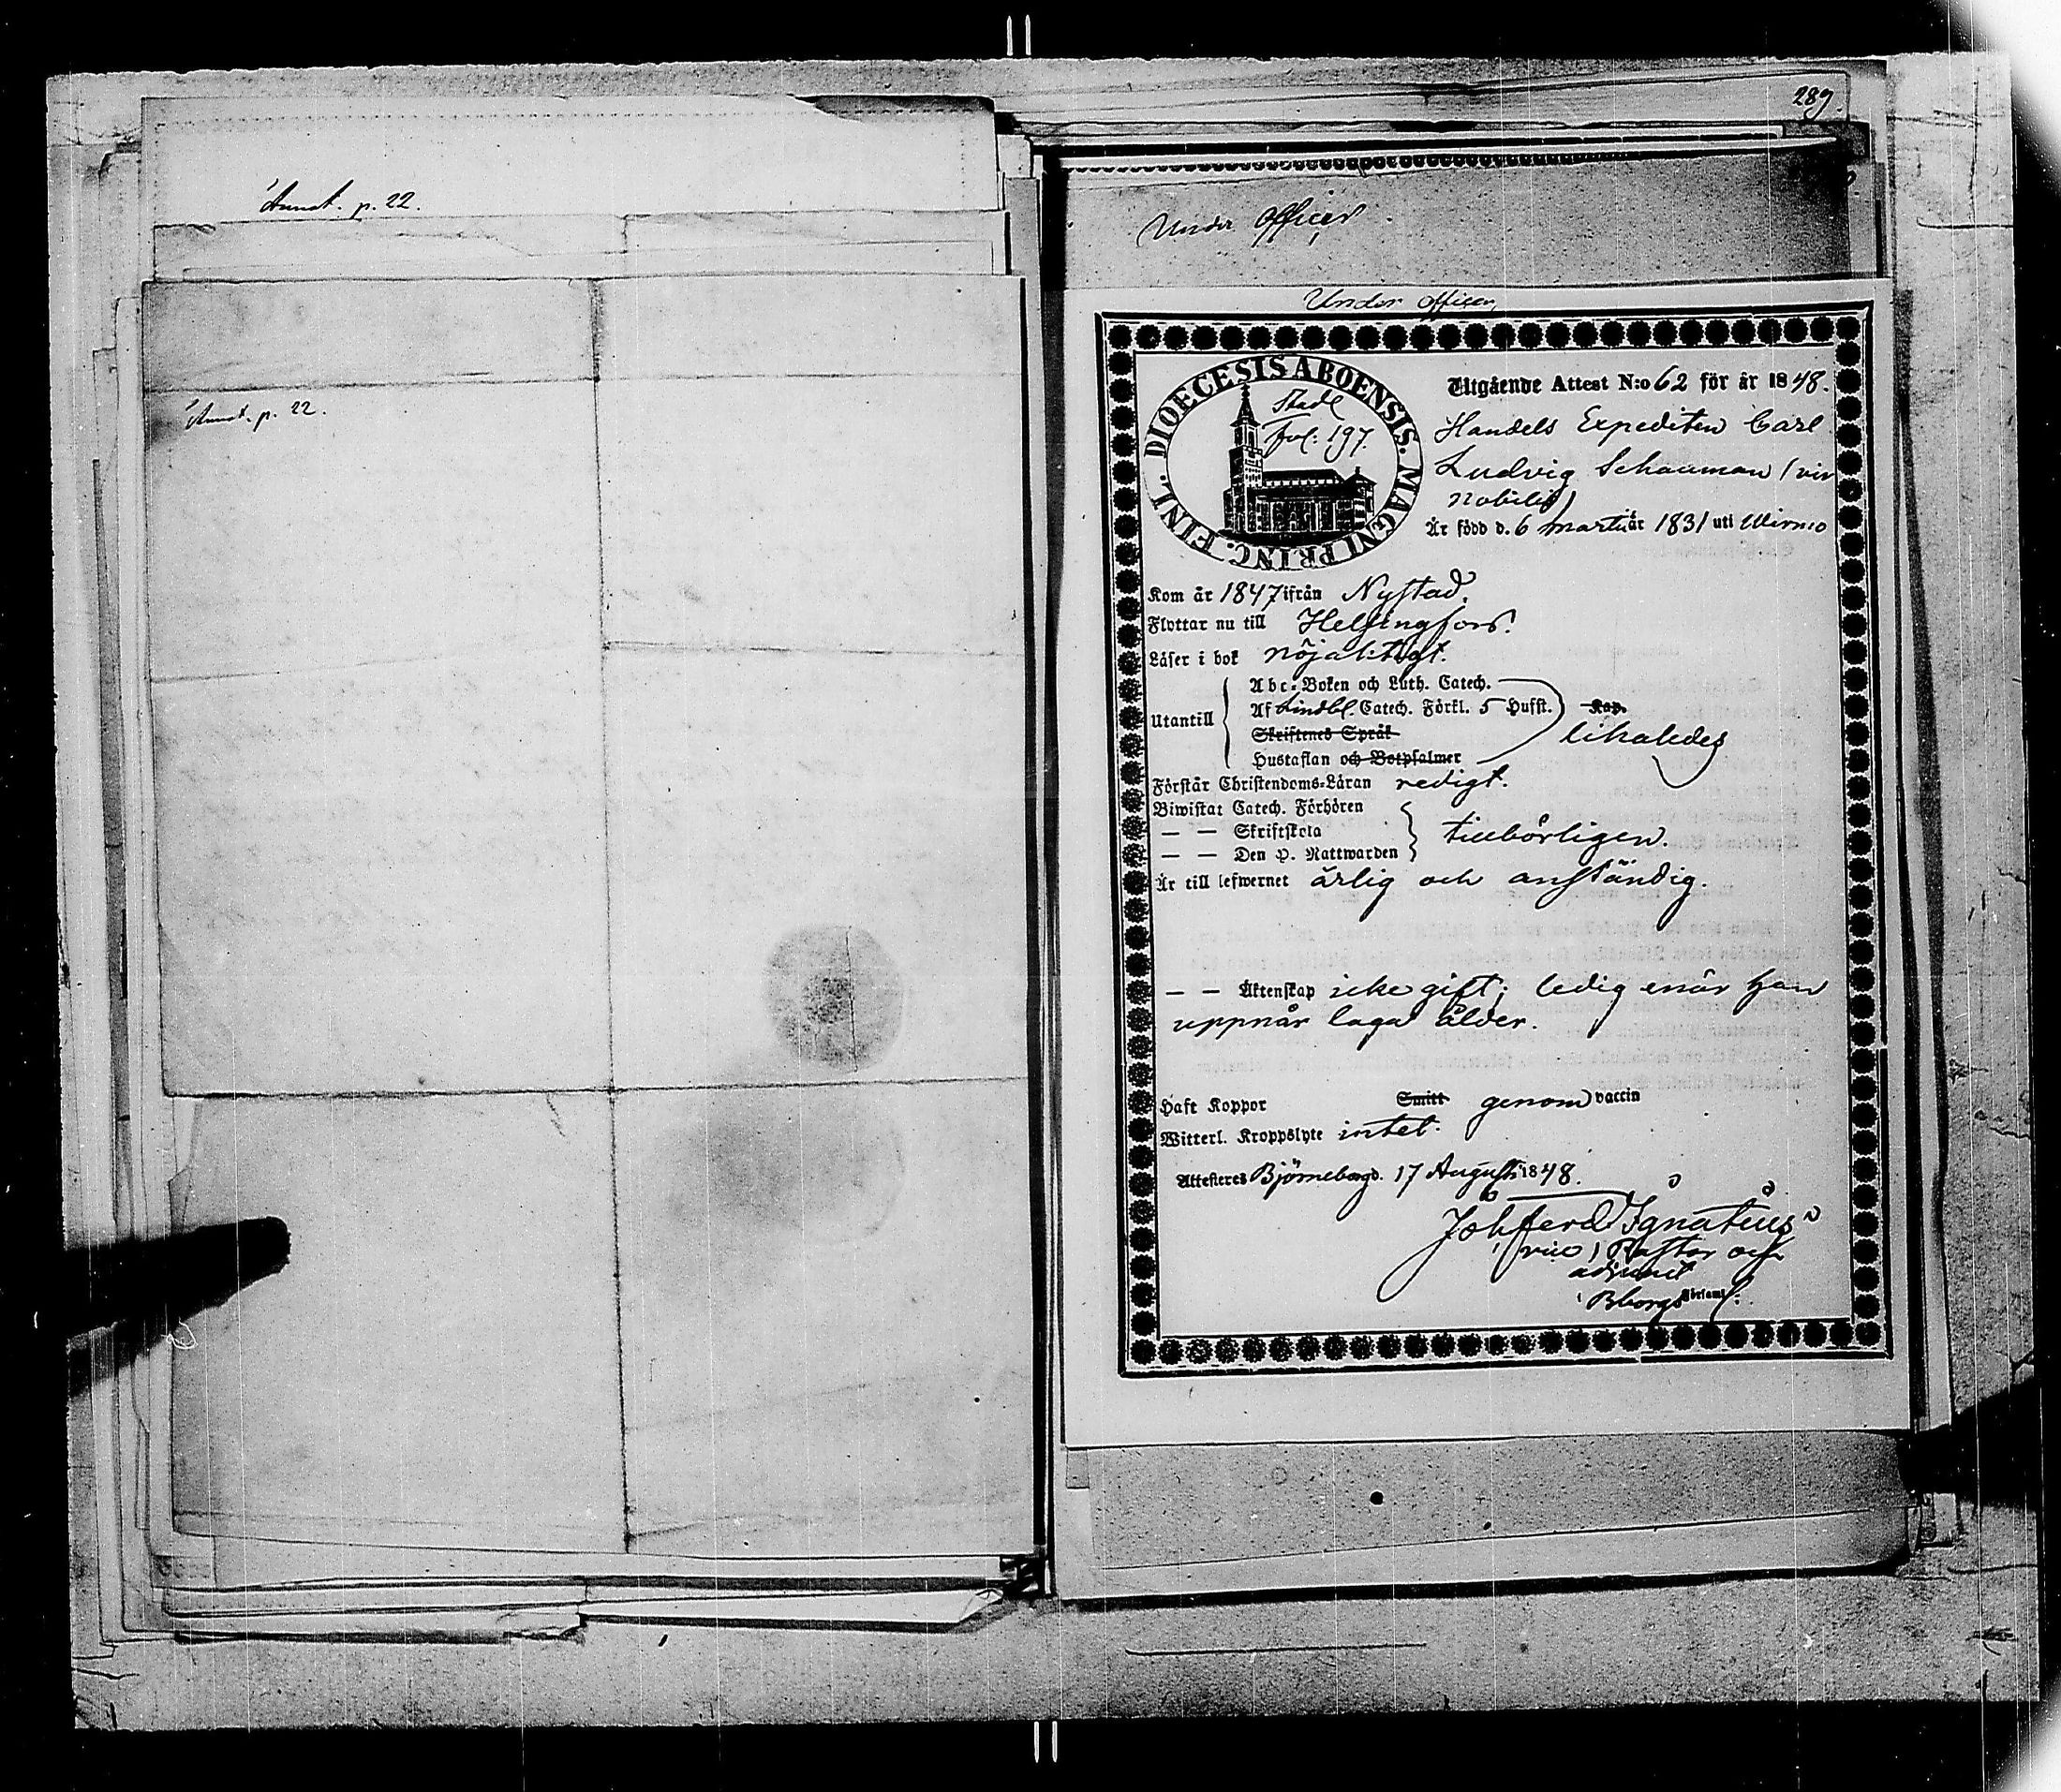 Annot. p. 22.
Annot. p. 22.
289.
Under Officer
Under officer,
DIOECESIS ABOENSIS. MAGNI PRINC. FINL.
Stadt
fol: 197.
Utgående Attest N:o 62 för år 1848.
Handels Expediten Carl
Ludvig Schauman (vir
nobilis)
Är född d. 6 martii år 1831 uti Wirmo
Kom år 1847 ifrån Nystad.
Flyttar nu till Helsingfors.
Läser i bok nöjaktigt.
Utantill
Abc-Boken och Luth. Catech.
Af Lindbl. Catech. Förkl. 5 Hufst. Kap.
Skriftenes Språk
Hustaflan och Botpsalmer
likaledes
Förstår Christendoms-Läran redigt.
Biwistat Catech. Förhören
— — Skriftskola
— — Den H. Nattwarden
tillbörligen.
Är till lefwernet ärlig och anständig.
— — Äktenskap icke gift; ledig enär han
uppnår laga ålder.
Haft Koppor Smitt genom vaccin
Witterl. Kroppslyte intet.
Attesteras Björneborg d. 17 Augusti 1848.
Joh ferd Ignatius
(vice) Pastor och
adjunct
i Bborgs Församl: